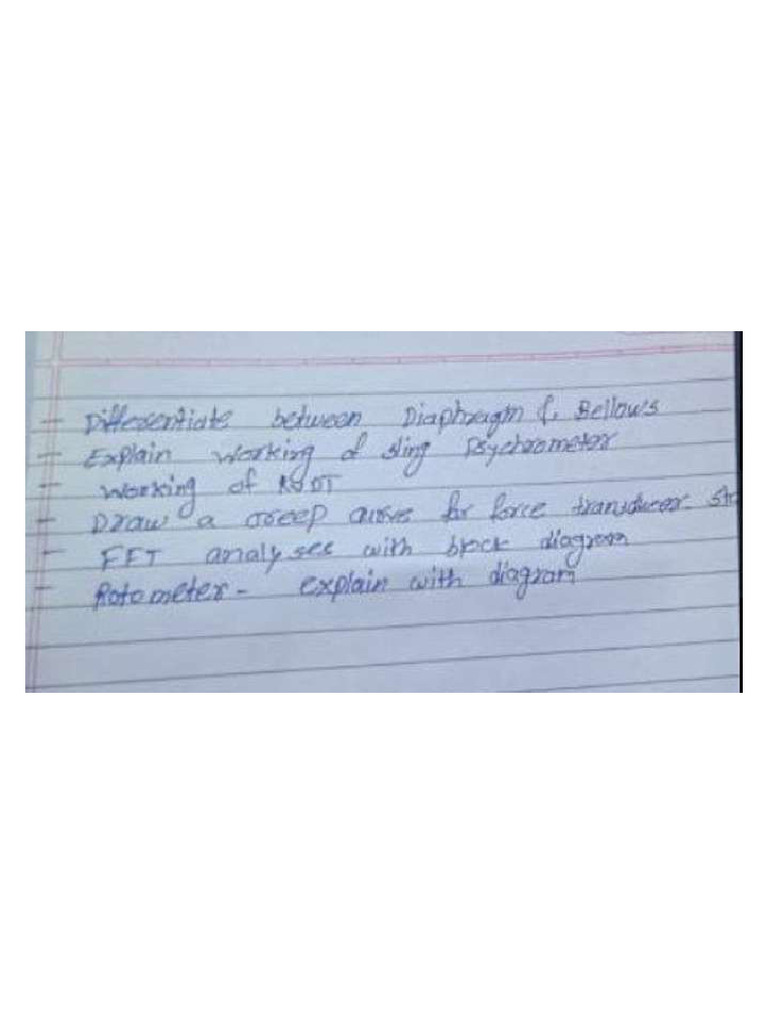 - Differentiate between Diaphragm & Bellows
- Explain working of sling Psychrometer
- Working of RVDT
- Draw a creep curve for force transducer
- FFT analyser with block diagram
- Rotometer - explain with diagram